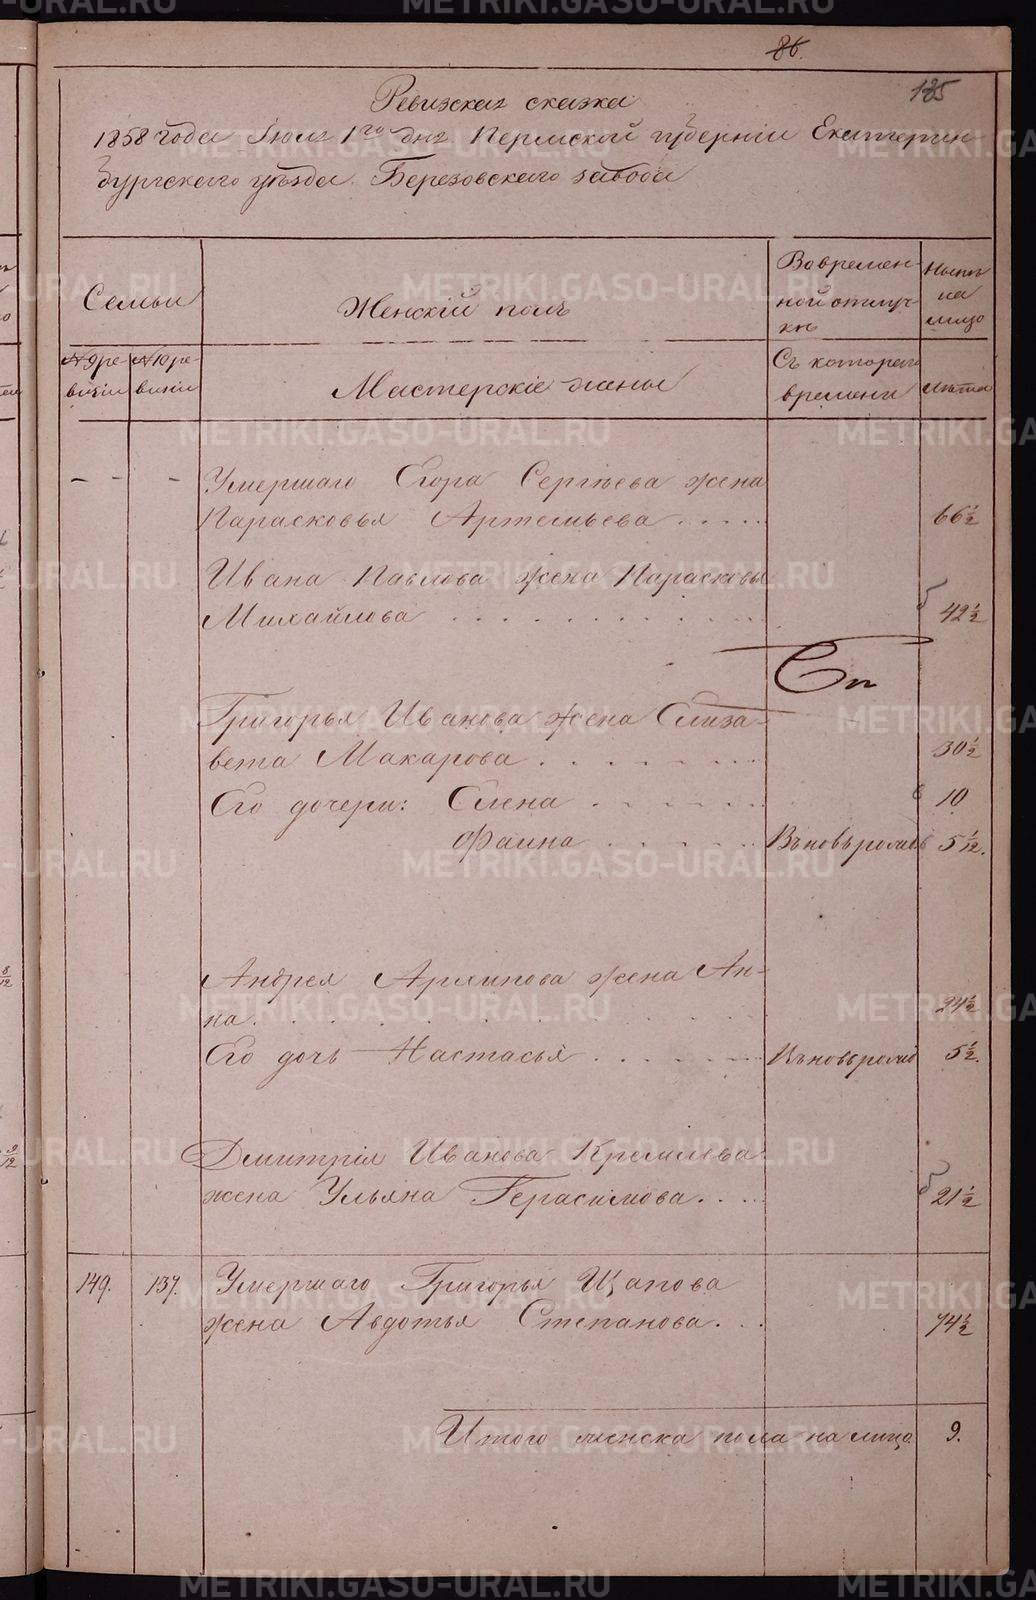 86.
185
Ревизская сказка
1858 года Iюля 1го дня Пермской губернiи Екатерин
бургского уѣзда Березовского завода
Семьи
Женскiй полъ
Во времен-
ной отлуч-
кѣ
Нынѣ
на
лицо
№ 9 ре-
визiи
№ 10 ре-
визiи
Мастерскiе жены
Съ которого
времени
лѣта
Умершаго Егора Сергѣева жена
Парасковья Артемьева . . . . . 66 ½
Ивана Павлова жена Парасковья
Михайлова . . . . . . . . . . . . 42 ½
Григорья Иванова жена Елиза-
вета Макарова . . . . . . . . 30 ½
Его дочери: Елена . . . . . . 10
Фаина . . . . . . Вновьрожд 5/12.
Андрея Архипова жена Ан-
на . . . . . . . . . . . . . . 24 ½
Его дочь Настасья . . . . . . Вновьрожд 5 ½.
Дмитрiя Иванова Кремлева
жена Ульяна Герасимова . . . . 21 ½
149. 137. Умершаго Григорья Щапова
жена Авдотья Степанова . . . 74 ½
Итого женска пола на лицо 9.
METRIKI.GASO-URAL.RU